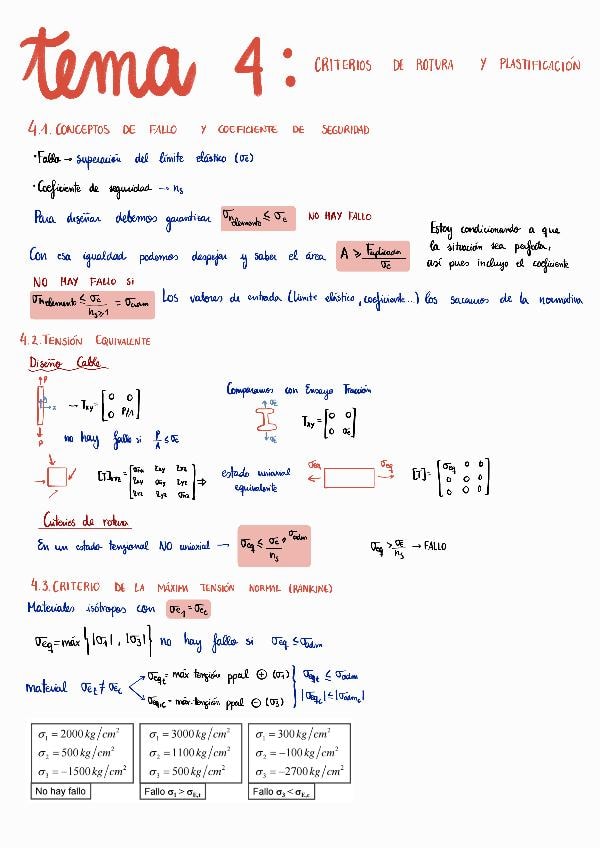 tema 4: CRITERIOS DE ROTURA Y PLASTIFICACIÓN
4.1. CONCEPTOS DE FALLO Y COEFICIENTE DE SEGURIDAD
· Fallo → superación del límite elástico (σe)
· Coeficiente de seguridad → ns
Para diseñar debemos garantizar σn elemento ≤ σe NO HAY FALLO
Estoy condicionando a que
la situación sea perfecta,
así pues incluyo el coeficiente
Con esa igualdad podemos despejar y saber el área A ≥ Faplicada / σe
NO HAY FALLO SI
σn elemento ≤ σe / ns≥1 = σadm Los valores de entrada (límite elástico, coeficiente...) los sacamos de la normativa
4.2. TENSIÓN EQUIVALENTE
Diseño Cable
P
→ Txy = [0 0
0 P/A]
P
no hay fallo si P/A ≤ σe
Comparamos con Ensayo Tracción
σe
Txy = [0 0
0 σe]
σe
[T]xyz = ⇒ estado uniaxial
equivalente
σeq σeq [T] = [σeq 0 0
0 0 0
0 0 0]
Criterios de rotura
En un estado tensional NO uniaxial → σeq ≤ σe / ns σadm
σeq > σe / ns → FALLO
4.3. CRITERIO DE LA MÁXIMA TENSIÓN NORMAL (RANKINE)
Materiales isótropos con σet = σec
σeq = máx {|σ1|, |σ3|} no hay fallo si σeq ≤ σadm
material σet ≠ σec
σeq,t = máx tensión ppal ⊕ (σ1)
σeq,c = máx tensión ppal ⊖ (σ3)
σeq,t ≤ σadm
|σeq,c| ≤ |σadm,c|
σ1 = 2000 kg/cm²
σ2 = 500 kg/cm²
σ3 = −1500 kg/cm²
No hay fallo
σ1 = 3000 kg/cm²
σ2 = 1100 kg/cm²
σ3 = 500 kg/cm²
Fallo σ1 > σE,t
σ1 = 300 kg/cm²
σ2 = −100 kg/cm²
σ3 = −2700 kg/cm²
Fallo σ3 < σE,c